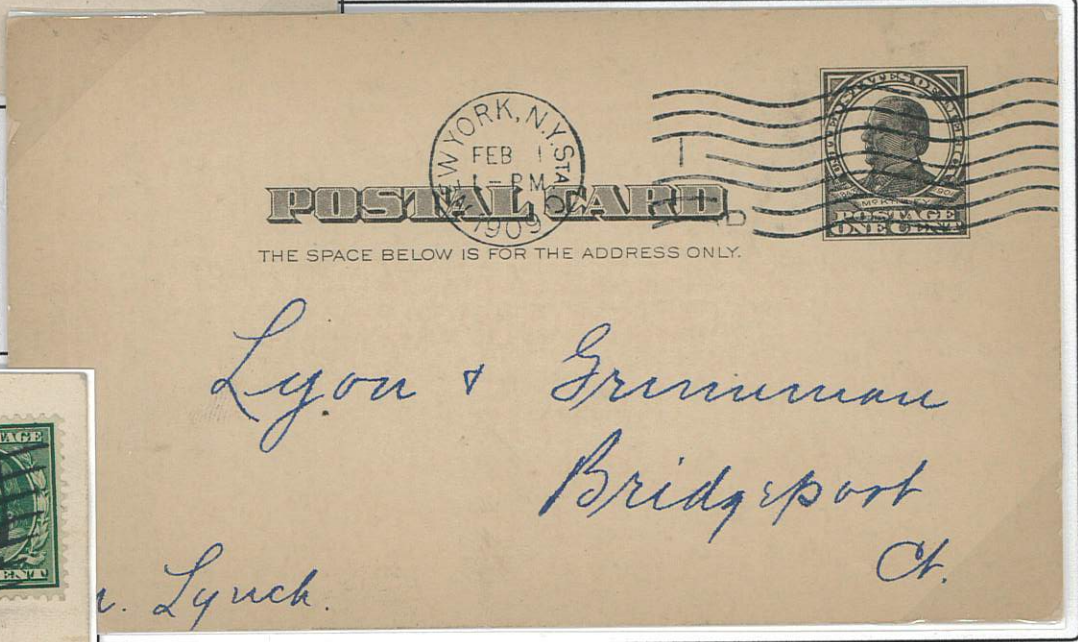 NEW YORK, N.Y. STA. O
FEB 1
1 - PM
1909
UNITED STATES OF AMERICA
McKINLEY
POSTAGE
ONE CENT
POSTAL CARD
THE SPACE BELOW IS FOR THE ADDRESS ONLY.
Lyon & Grumman
Bridgeport
Ct.
Lynch.